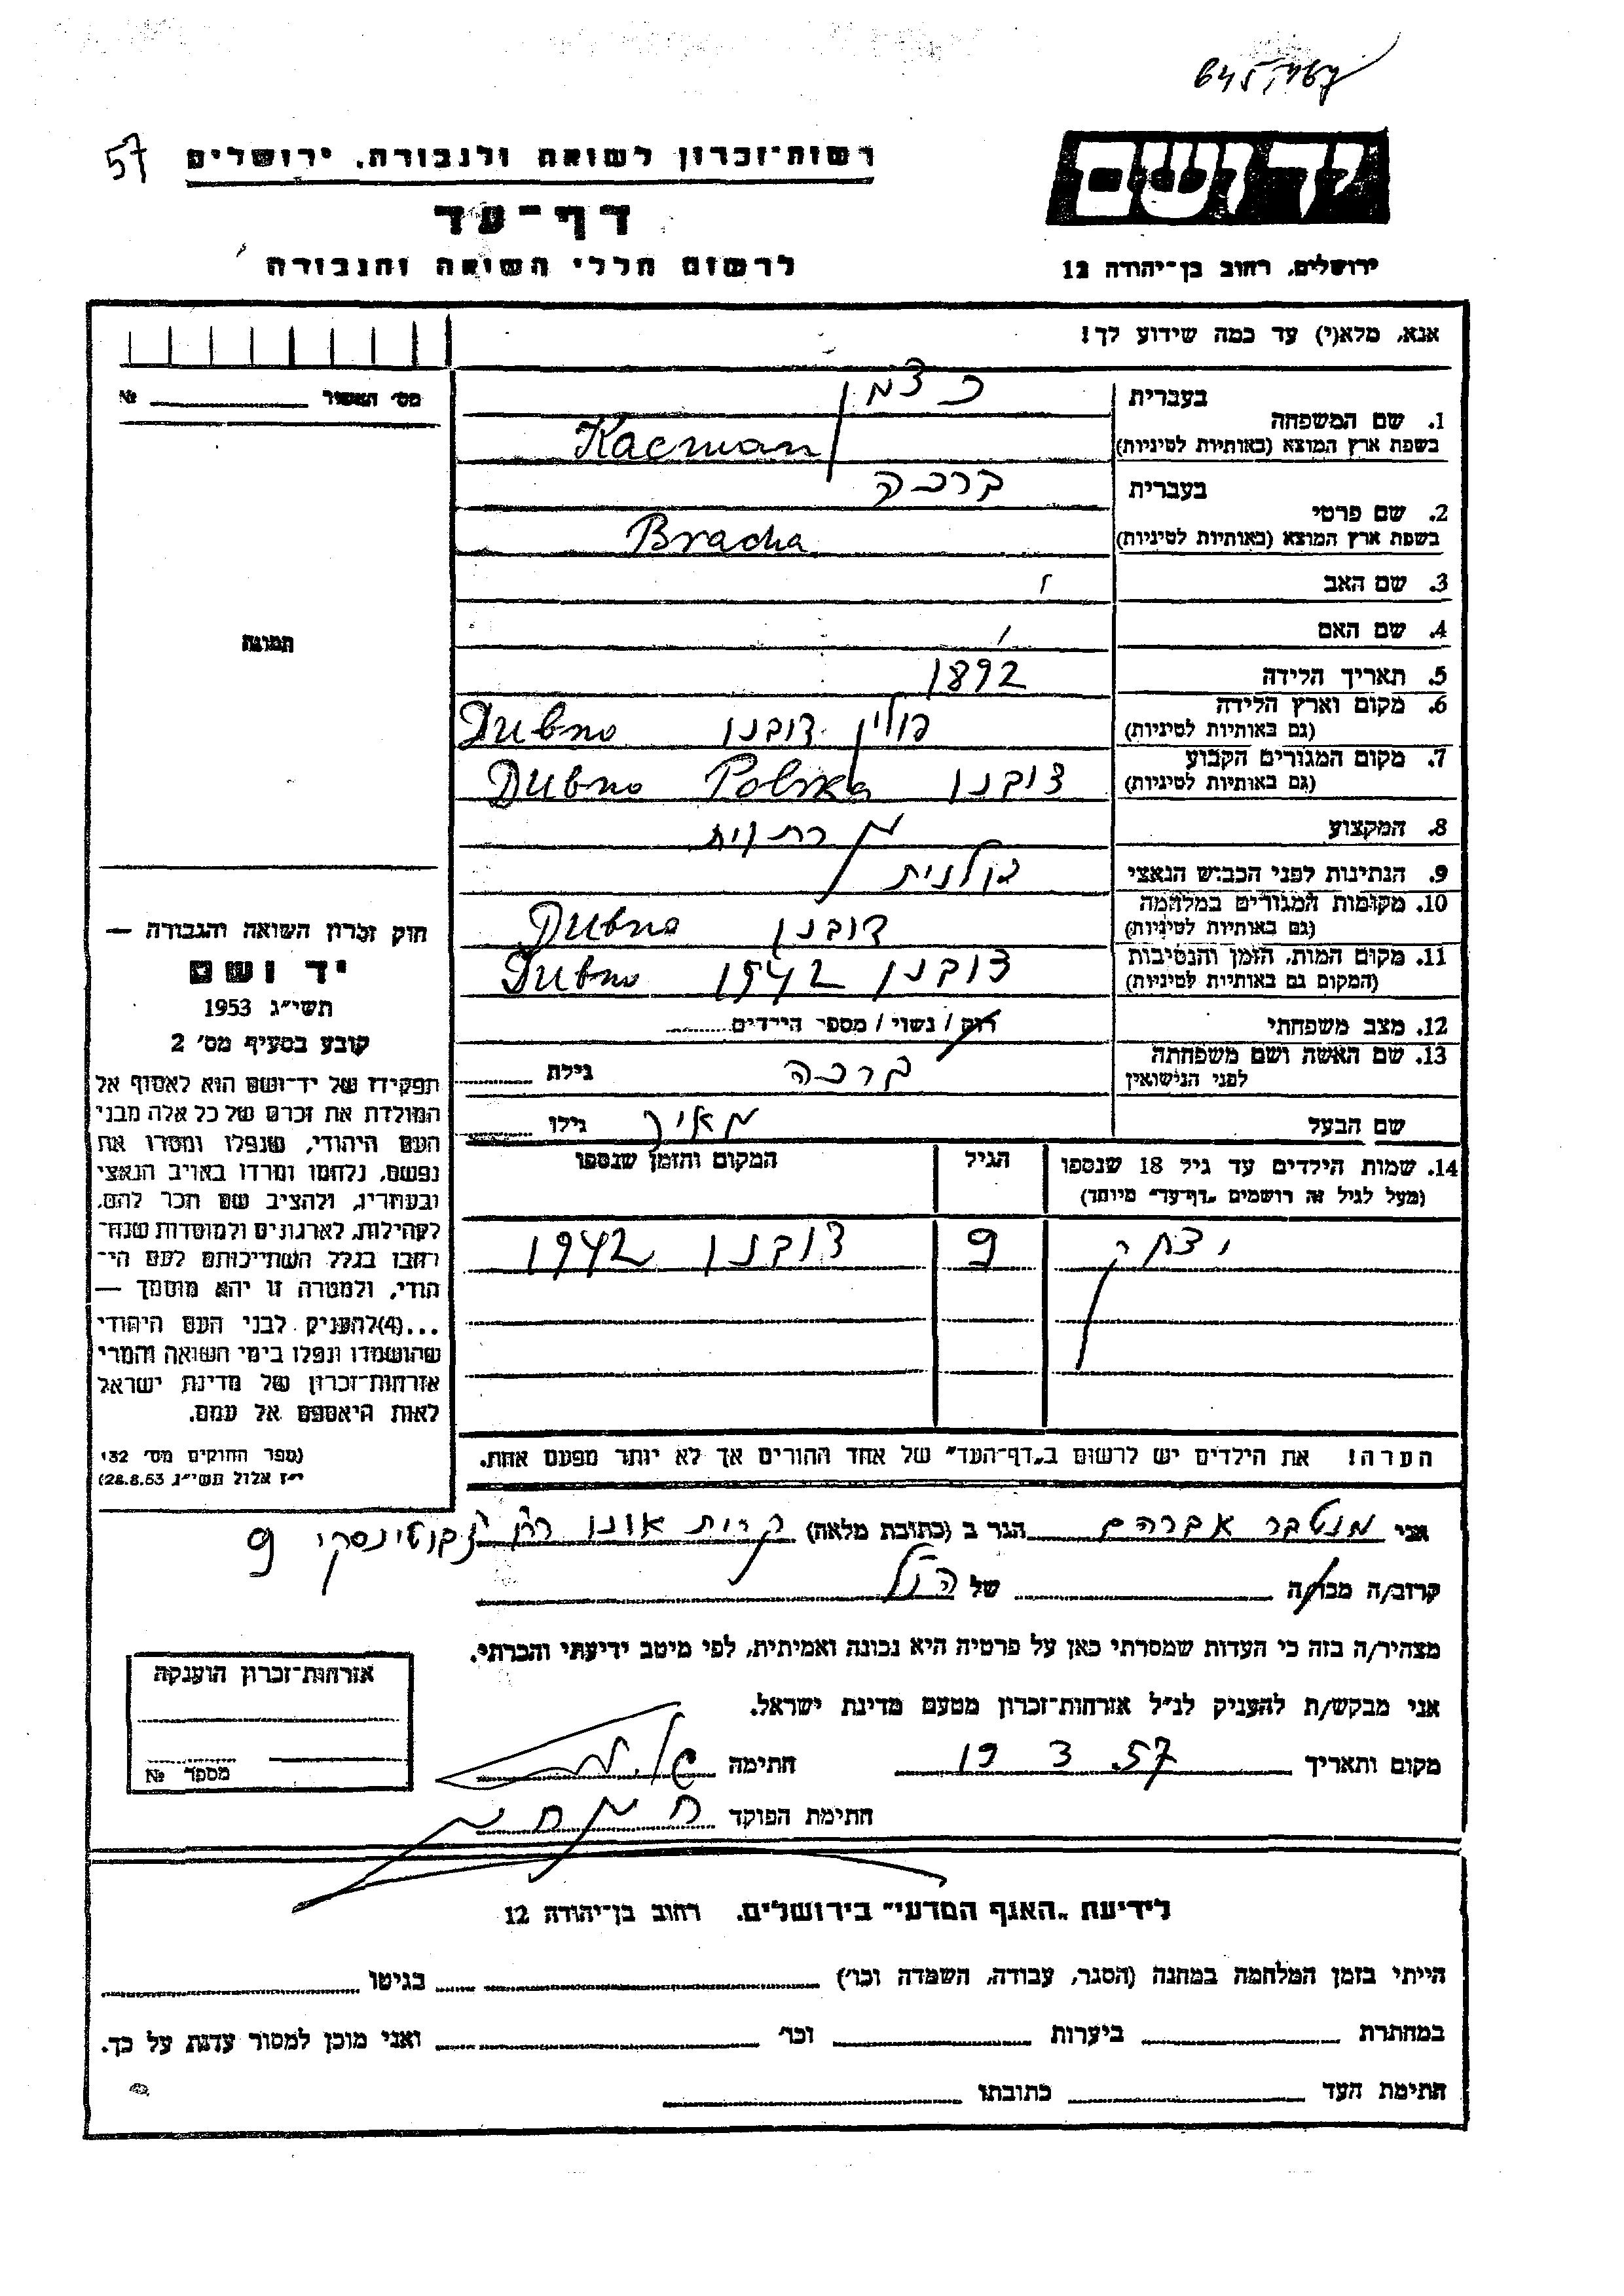 57
רשות־זכרון לשואה ולגבורה, ירושלים
יד ושם
דף־עד
לרשום חללי השואה והגבורה
ירושלים, רחוב בן־יהודה 12
אנא, מלא(י) עד כמה שידוע לך!
מס' האשור № 
תמונה
חוק זכרון השואה והגבורה —
יד ושם
תשי"ג 1953
קובע בסעיף מס' 2
תפקידו של יד־ושם הוא לאסוף אל
המולדת את זכרם של כל אלה מבני
העם היהודי, שנפלו ומסרו את
נפשם, נלחמו ומרדו באויב הנאצי
ובעוזריו, ולהציב שם וזכר להם,
לקהילות, לארגונים ולמוסדות שנח־
רבו בגלל השתייכותם לעם הי־
הודי, ולמטרה זו יהא מוסמך —
...(4)להעניק לבני העם היהודי
שהושמדו ונפלו בימי השואה והמרי
אזרחות־זכרון של מדינת ישראל
לאות היאספם אל עמם.
(ספר החוקים מס' 132
י"ז אלול תשי"ג 28.8.53)
1. שם המשפחה בעברית כצמן
בשפת ארץ המוצא (באותיות לטיניות) Kacman
2. שם פרטי בעברית ברכה
בשפת ארץ המוצא (באותיות לטיניות) Bracha
3. שם האב
4. שם האם
5. תאריך הלידה 1892
6. מקום וארץ הלידה פולין דובנו Dubno
(גם באותיות לטיניות)
7. מקום המגורים הקבוע דובנו Dubno Polska
(גם באותיות לטיניות)
8. המקצוע
9. הנתינות לפני הכבוש הנאצי פולנית
10. מקומות המגורים במלחמה דובנו Dubno
(גם באותיות לטיניות)
11. מקום המות, הזמן והנסיבות דובנו 1942 Dubno
(המקום גם באותיות לטיניות)
12. מצב משפחתי רוק / נשוי / מספר הילדים
13. שם האשה ושם משפחתה ברכה גילה
לפני הנישואין
שם הבעל מאיר גילו
14. שמות הילדים עד גיל 18 שנספו הגיל המקום והזמן שנספו
(מעל לגיל זה רושמים „דף־עד" מיוחד)
יצחק 9 דובנו 1942
הערה! את הילדים יש לרשום ב„דף־העד" של אחד ההורים אך לא יותר מפעם אחת.
אני מנטבר אברהם הגר ב (כתובת מלאה) קרית אונו רח' ז'בוטינסקי 9
קרוב/ה מכר/ה של הנ"ל
מצהיר/ה בזה כי העדות שמסרתי כאן על פרטיה היא נכונה ואמיתית, לפי מיטב ידיעתי והכרתי.
אני מבקש/ת להעניק לנ"ל אזרחות־זכרון מטעם מדינת ישראל.
מקום ותאריך 19 3 .57 חתימה
חתימת הפוקד
אזרחות־זכרון הוענקה
מספר №
לידיעת „האגף המדעי" בירושלים. רחוב בן־יהודה 12
הייתי בזמן המלחמה במחנה (הסגר, עבודה, השמדה וכו') בגיטו
במחתרת ביערות וכו' ואני מוכן למסור עדות על כך.
חתימת העד כתובתו